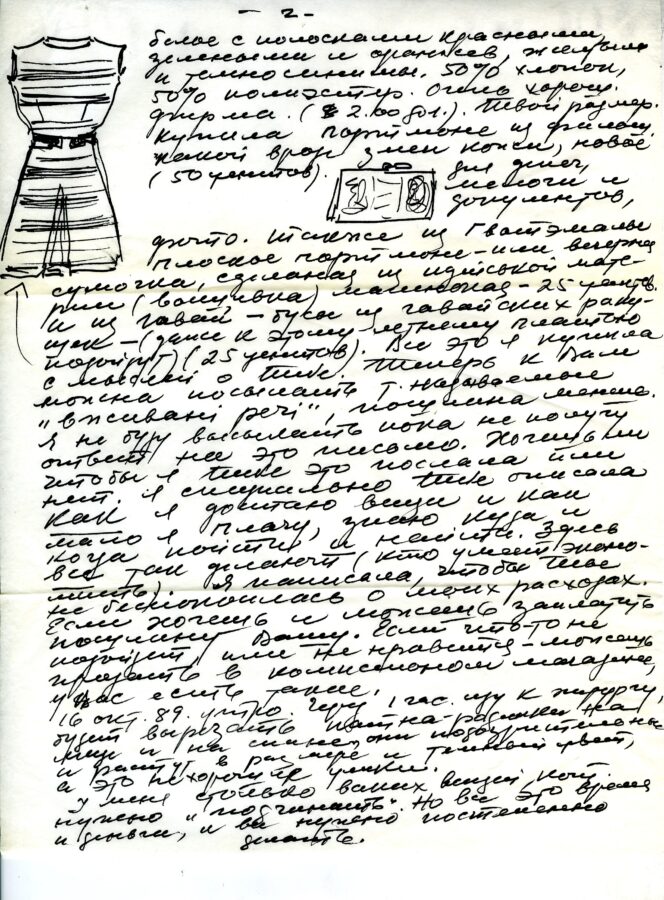 - 2 -
белое с полосками красными,
зелеными и оранжев, желтыми
и темносиними. 50% хлопок,
50% полиэстер. Очень хорош.
фирма. ($ 2.00 дол.). Твой размер.
Купила портмоне из
какой змеи кожи, новое
(50 центов). для денег,
мелочи и
документов,
фото. Также из Гватэмалы
плоское портмоне - или вечерняя
сумочка, сделаная из индейской мате-
рии (вышивка) маленькая - 25 центов.
и из Гавай - бусы из гавайских раку-
шек - (даже к этому летнему платью
подойдут) (25 центов). Все это я купила
с мыслей о Тебе. Теперь к Вам
можна посылать т. называемые
"вживані речі", пошлина меньше.
Я не буду высылать пока не получу
ответ на это письмо. Хочешь ли
чтобы я Тебе это послала или
нет. Я специально Тебе описала
как я достаю вещи и как
мало я плачу, знаю куда и
когда пойти и найти. Здесь
все так делают (кто умеет эконо-
мить). Я написала, чтобы Тебе
не беспокоилась о моих расходах.
Если хочешь и можешь заплатить
пошлину Вашу. Если что-то не
подойдет или не нравится - можешь
продать в комисионном магазине,
у вас есть такие.
16 окт. 89. утро. Через 1 час. иду к хирургу,
будет вырезать пятна-родинки на
лице и на спине, они подозрительные
и растут в размере и темный цвет,
а это не хороший
У меня столько ваших вещей, кот.
нужно "подчинять". Но все это время
и деньги, и все нужно постепенно
делать.